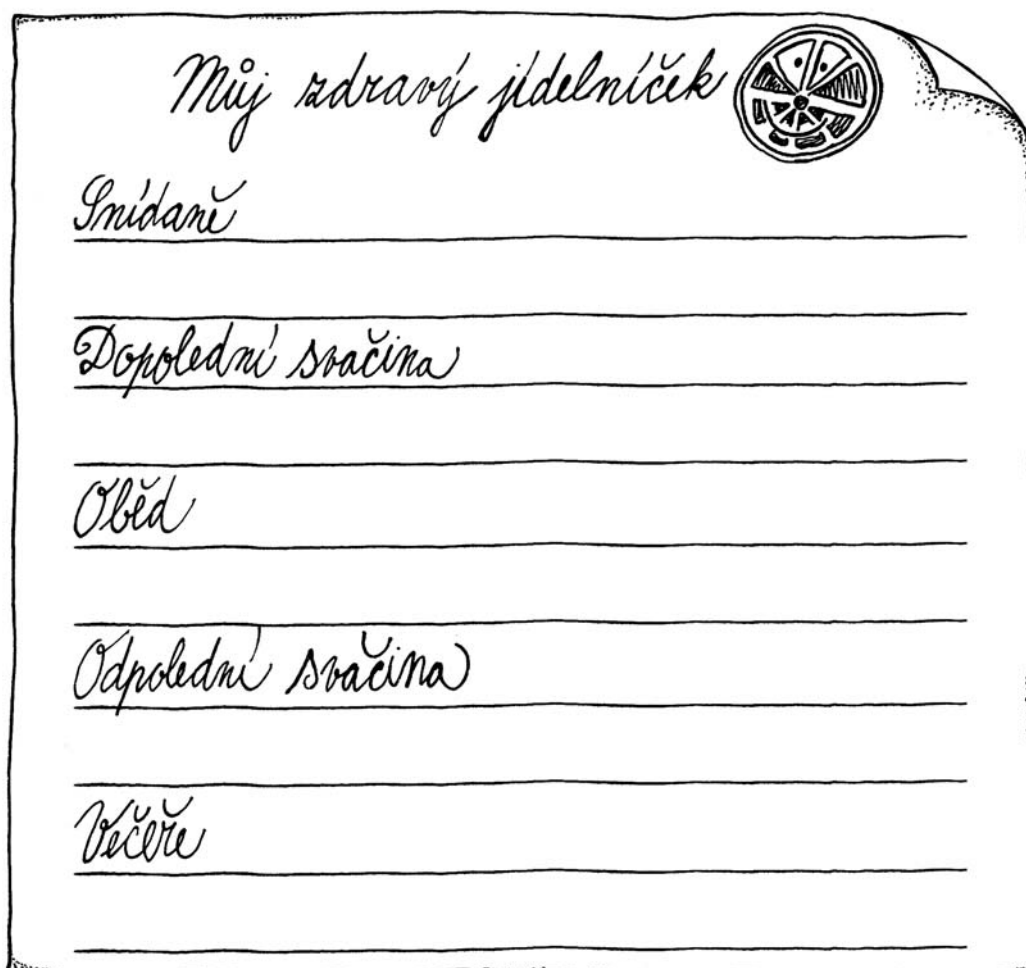 Můj zdravý jídelníček
Snídaně
Dopolední svačina
Oběd
Odpolední svačina
Večeře